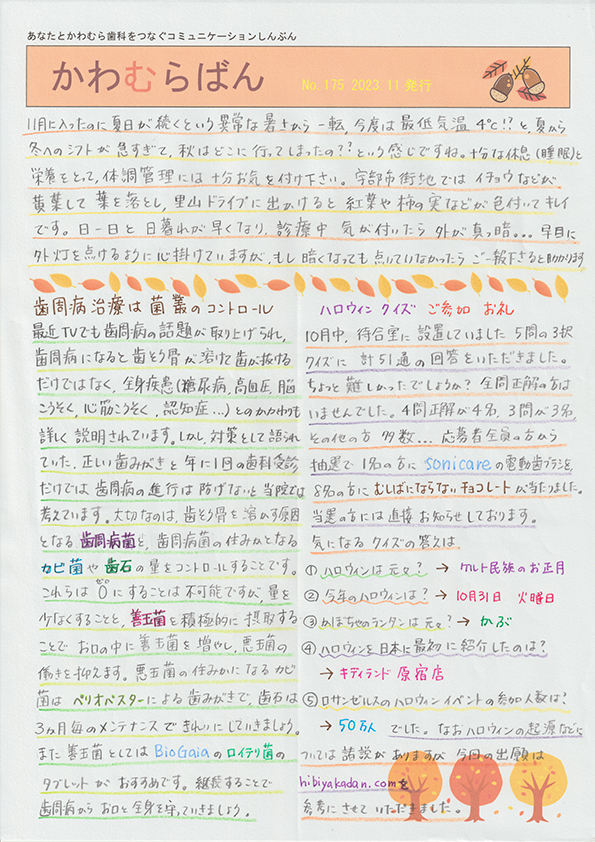 あなたとかわむら歯科をつなぐコミュニケーションしんぶん
かわむらばん
No.175 2023.11発行
11月に入ったのに夏日が続くという異常な暑さから一転、今度は最低気温4℃!?と、夏から
冬へのシフトが急すぎて、秋はどこに行ってしまったの??という感じですね。十分な休息(睡眠)と
栄養をとって、体調管理には十分お気を付け下さい。宇部市街地ではイチョウなどが
黄葉して葉を落とし、里山ドライブに出かけると紅葉や柿の実などが色付いてキレイ
です。日一日と日暮れが早くなり、診療中気が付いたら外が真っ暗。。。早目に
外灯を点けるように心掛けていますが、もし暗くなっても点いていなかったらご一報下さると助かります
歯周病治療は菌叢のコントロール
最近TVでも歯周病の話題が取り上げられ、
歯周病になると歯そう骨が溶けて歯が抜ける
だけではなく、全身疾患(糖尿病、高血圧、脳
こうそく、心筋こうそく、認知症...)とのかかわりも
詳しく説明されています。しかし、対策として語られ
ていた、正しい歯みがきと年に1回の歯科受診
だけでは歯周病の進行は防げないと当院では
考えています。大切なのは、歯そう骨を溶かす原因
となる歯周病菌と、歯周病菌の住みかとなる
カビ菌や歯石の量をコントロールすることです。
これらは0(ゼロ)にすることは不可能ですが、量を
少なくすることと、善玉菌を積極的に摂取する
ことでお口の中に善玉菌を増やし、悪玉菌の
働きを抑えます。悪玉菌の住みかになるカビ
菌はペリオバスターによる歯みがきで、歯石は
3ヵ月毎のメンテナンスできれいにしていきましょう。
また善玉菌としてはBioGaiaのロイテリ菌の
タブレットがおすすめです。継続することで
歯周病からお口と全身を守っていきましょう。
ハロウィンクイズ ご参加 お礼
10月中、待合室に設置していました5問の3択
クイズに計51通の回答をいただきました。
ちょっと難しかったでしょうか?全問正解の方は
いませんでした。4問正解が4名、3問が3名、
その他の方多数...応募者全員の方から
抽選で1名の方にsonicareの電動歯ブラシを、
8名の方にむしばにならないチョコレートが当たりました。
当選の方には直接お知らせしております。
気になるクイズの答えは
①ハロウィンは元々? → ケルト民族のお正月
②今年のハロウィンは? → 10月31日 火曜日
③かぼちゃのランタンは元々? → かぶ
④ハロウィンを日本に最初に紹介したのは?
→ キディランド 原宿店
⑤ロサンゼルスのハロウィンイベントの参加人数は?
→ 50万人 でした。なおハロウィンの起源などに
ついては諸説がありますが今回の出願は
hibiyakadan.comを
参考にさせていただきました。